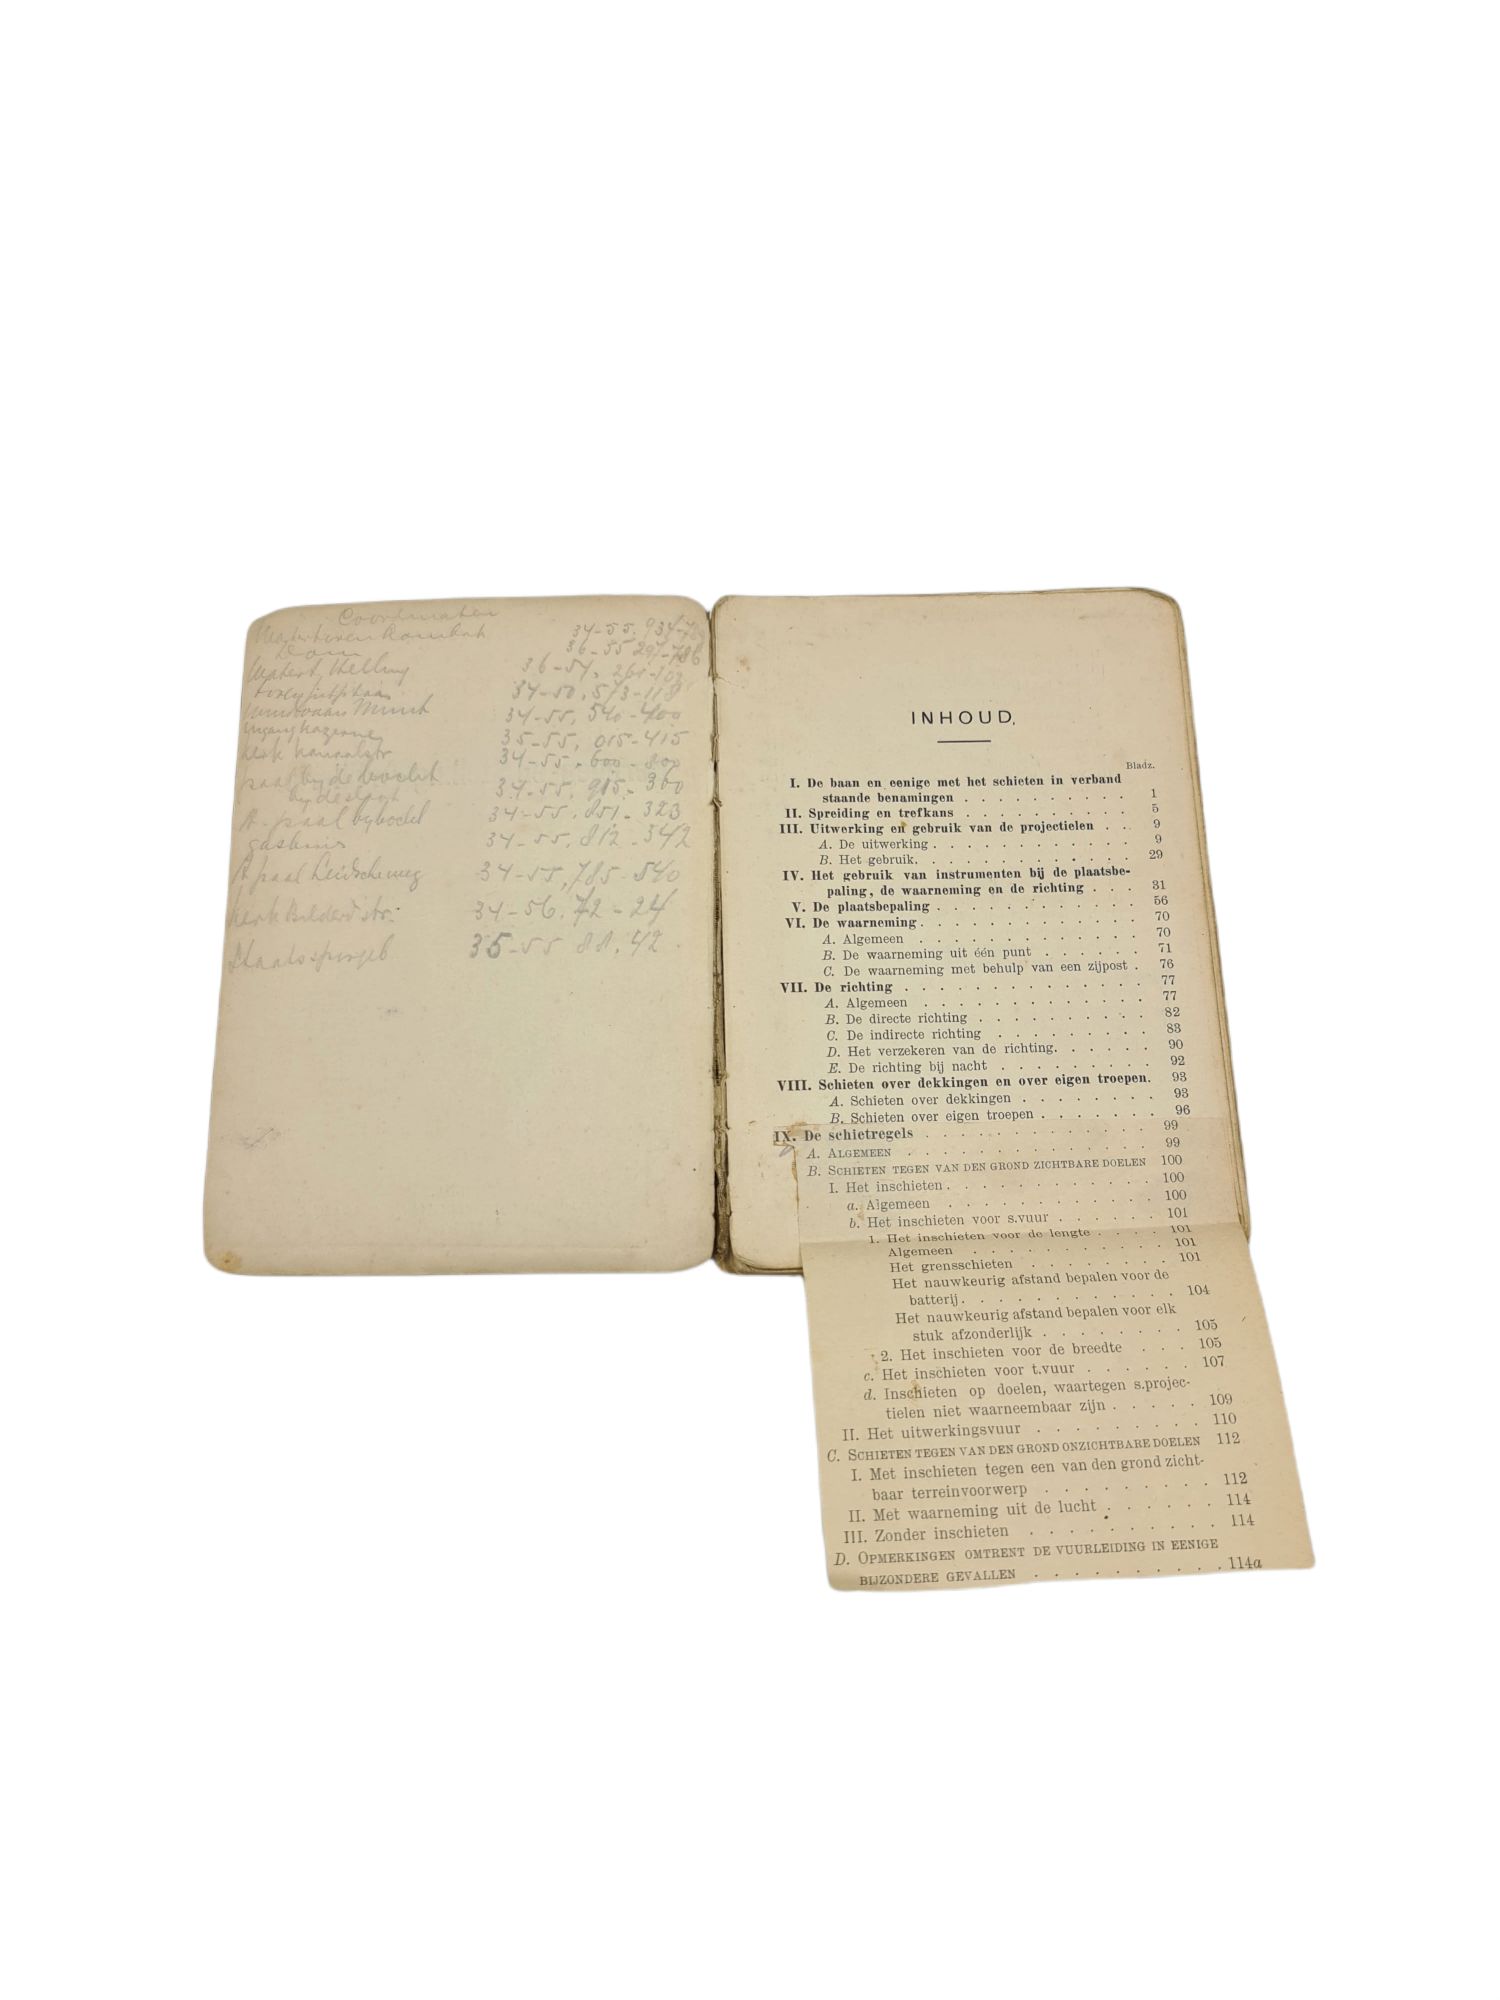 Coordinaten
34-55. 934-78
Dom 36-55 297-786
36-54. 261-102
34-50. 573-118
34-55. 540-400
ingang kazerne 35-55. 015-415
kerk kanaalstr. 34-55. 600-800
paal bij de bocht
bij de sloot 34-55. 915-360
A-paal bij bocht 34-55. 851-323
gashuis 34-55. 812-342
A paal Leidscheweg 34-55, 785-540
kerk Bilderd. str. 34-56. 72-24
Staatsspoorgeb 35-55 88.42
INHOUD.
Bladz.
I. De baan en eenige met het schieten in verband
staande benamingen . . . . . . . . . . 1
II. Spreiding en trefkans . . . . . . . . . . 5
III. Uitwerking en gebruik van de projectielen . . . 9
A. De uitwerking . . . . . . . . . . . . 9
B. Het gebruik. . . . . . . . . . . . . 29
IV. Het gebruik van instrumenten bij de plaatsbe-
paling, de waarneming en de richting . . . 31
V. De plaatsbepaling . . . . . . . . . . . . 56
VI. De waarneming . . . . . . . . . . . . . 70
A. Algemeen . . . . . . . . . . . . . 70
B. De waarneming uit één punt . . . . . . 71
C. De waarneming met behulp van een zijpost . 76
VII. De richting . . . . . . . . . . . . . . 77
A. Algemeen . . . . . . . . . . . . . 77
B. De directe richting . . . . . . . . . . 82
C. De indirecte richting . . . . . . . . . 83
D. Het verzekeren van de richting. . . . . . 90
E. De richting bij nacht . . . . . . . . . 92
VIII. Schieten over dekkingen en over eigen troepen. 93
A. Schieten over dekkingen . . . . . . . . 93
B. Schieten over eigen troepen . . . . . . . 96
IX. De schietregels . . . . . . . . . . . . . 99
A. ALGEMEEN . . . . . . . . . . . . . . 99
B. SCHIETEN TEGEN VAN DEN GROND ZICHTBARE DOELEN 100
I. Het inschieten . . . . . . . . . . . . 100
a. Algemeen . . . . . . . . . . . . 100
b. Het inschieten voor s.vuur . . . . . . 101
1. Het inschieten voor de lengte . . . . 101
Algemeen . . . . . . . . . . . . 101
Het grensschieten . . . . . . . . 101
Het nauwkeurig afstand bepalen voor de
batterij . . . . . . . . . . . . 104
Het nauwkeurig afstand bepalen voor elk
stuk afzonderlijk . . . . . . . . 105
2. Het inschieten voor de breedte . . . 105
c. Het inschieten voor t.vuur . . . . . . 107
d. Inschieten op doelen, waartegen s.projec-
tielen niet waarneembaar zijn . . . . . 109
II. Het uitwerkingsvuur . . . . . . . . . 110
C. SCHIETEN TEGEN VAN DEN GROND ONZICHTBARE DOELEN 112
I. Met inschieten tegen een van den grond zicht-
baar terreinvoorwerp . . . . . . . . . 112
II. Met waarneming uit de lucht . . . . . . 114
III. Zonder inschieten . . . . . . . . . . 114
D. OPMERKINGEN OMTRENT DE VUURLEIDING IN EENIGE
BIJZONDERE GEVALLEN . . . . . . . . . . 114a